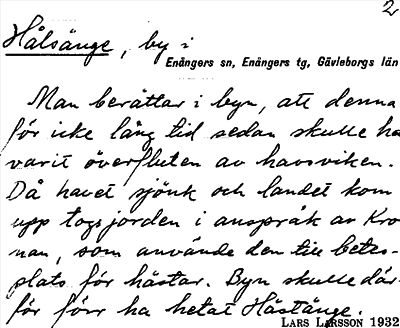 2
Hålsänge, by i
Enångers sn, Enångers tg, Gävleborgs län
Man berättar i byn, att denna
för icke lång tid sedan skulle ha
varit överfluten av havsviken.
Då havet sjönk och landet kom
upp togs jorden i anspråk av Kro-
nan, som använde den till betes-
plats för hästar. Byn skulle där-
för förr ha hetat Hästänge.
LARS LARSSON 1932